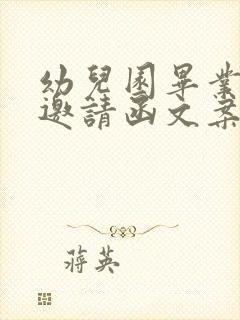 幼兒園畢業
邀請函文案
蔣英